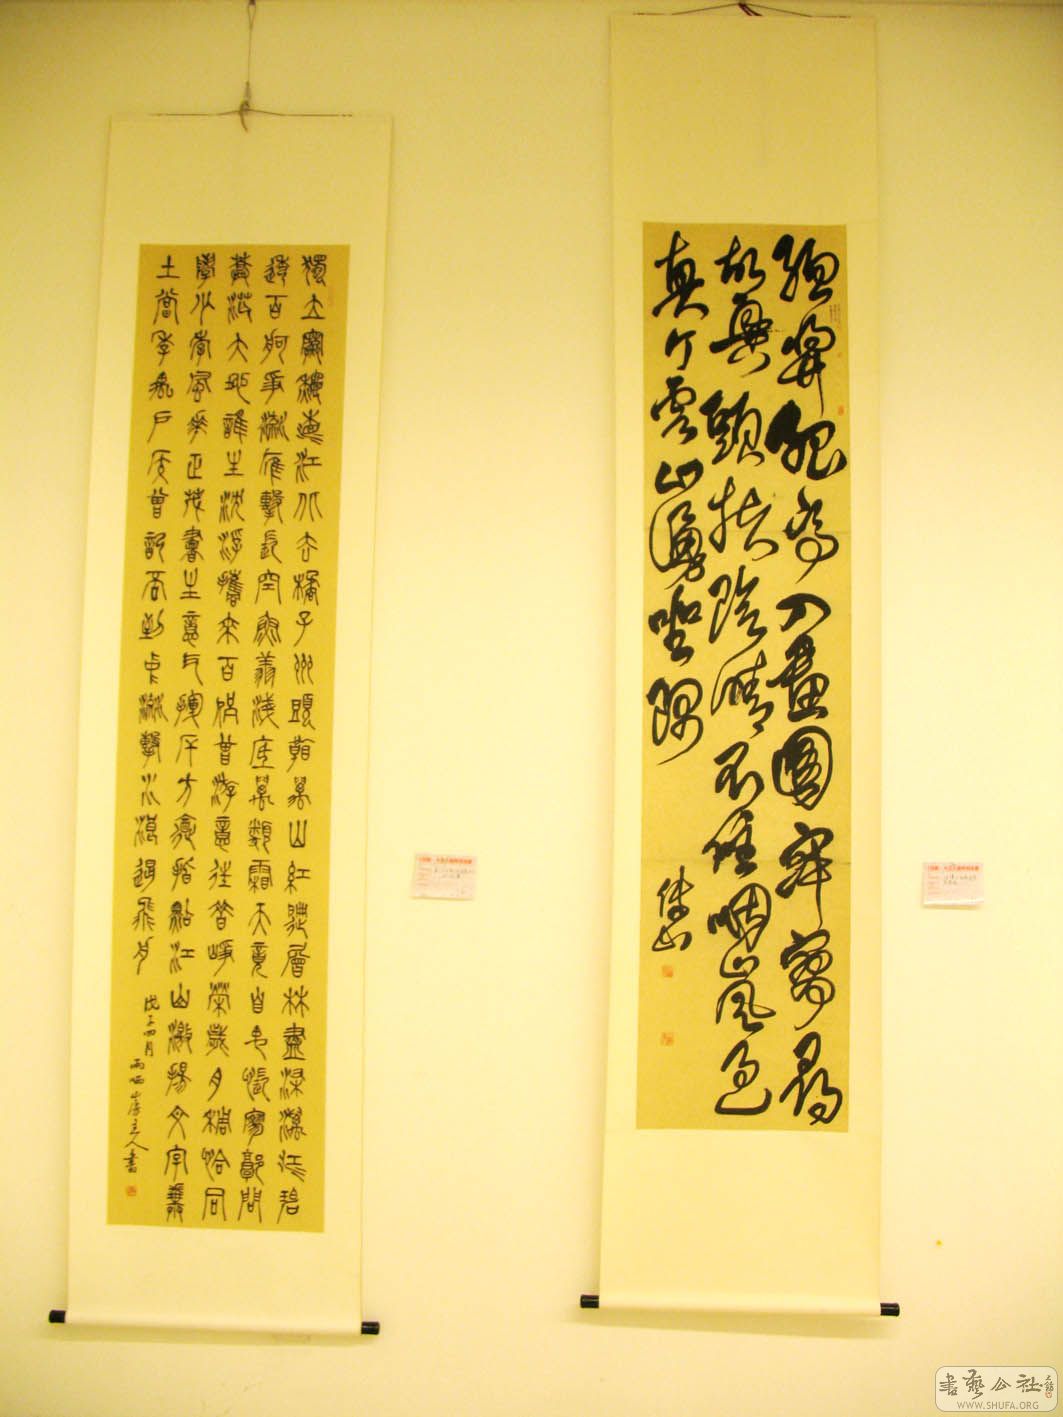 獨立寒秋湘江北去橘子州頭看萬山紅遍層林盡染漫江碧
透百舸爭流鷹擊長空魚翔淺底萬類霜天競自由悵寥廓問
蒼茫大地誰主沈浮攜來百侶曾游憶往昔崢嶸歲月稠恰同
學少年風華正茂書生意氣揮斥方遒指點江山激揚文字糞
土當年萬戶侯曾記否到中流擊水浪遏飛舟
戊子四月
主人書
入畫圖
興頭
陰晴不
烟嵐色
真个雲山湧坐隅
傅山
書藝公社
WWW.SHUFA.ORG